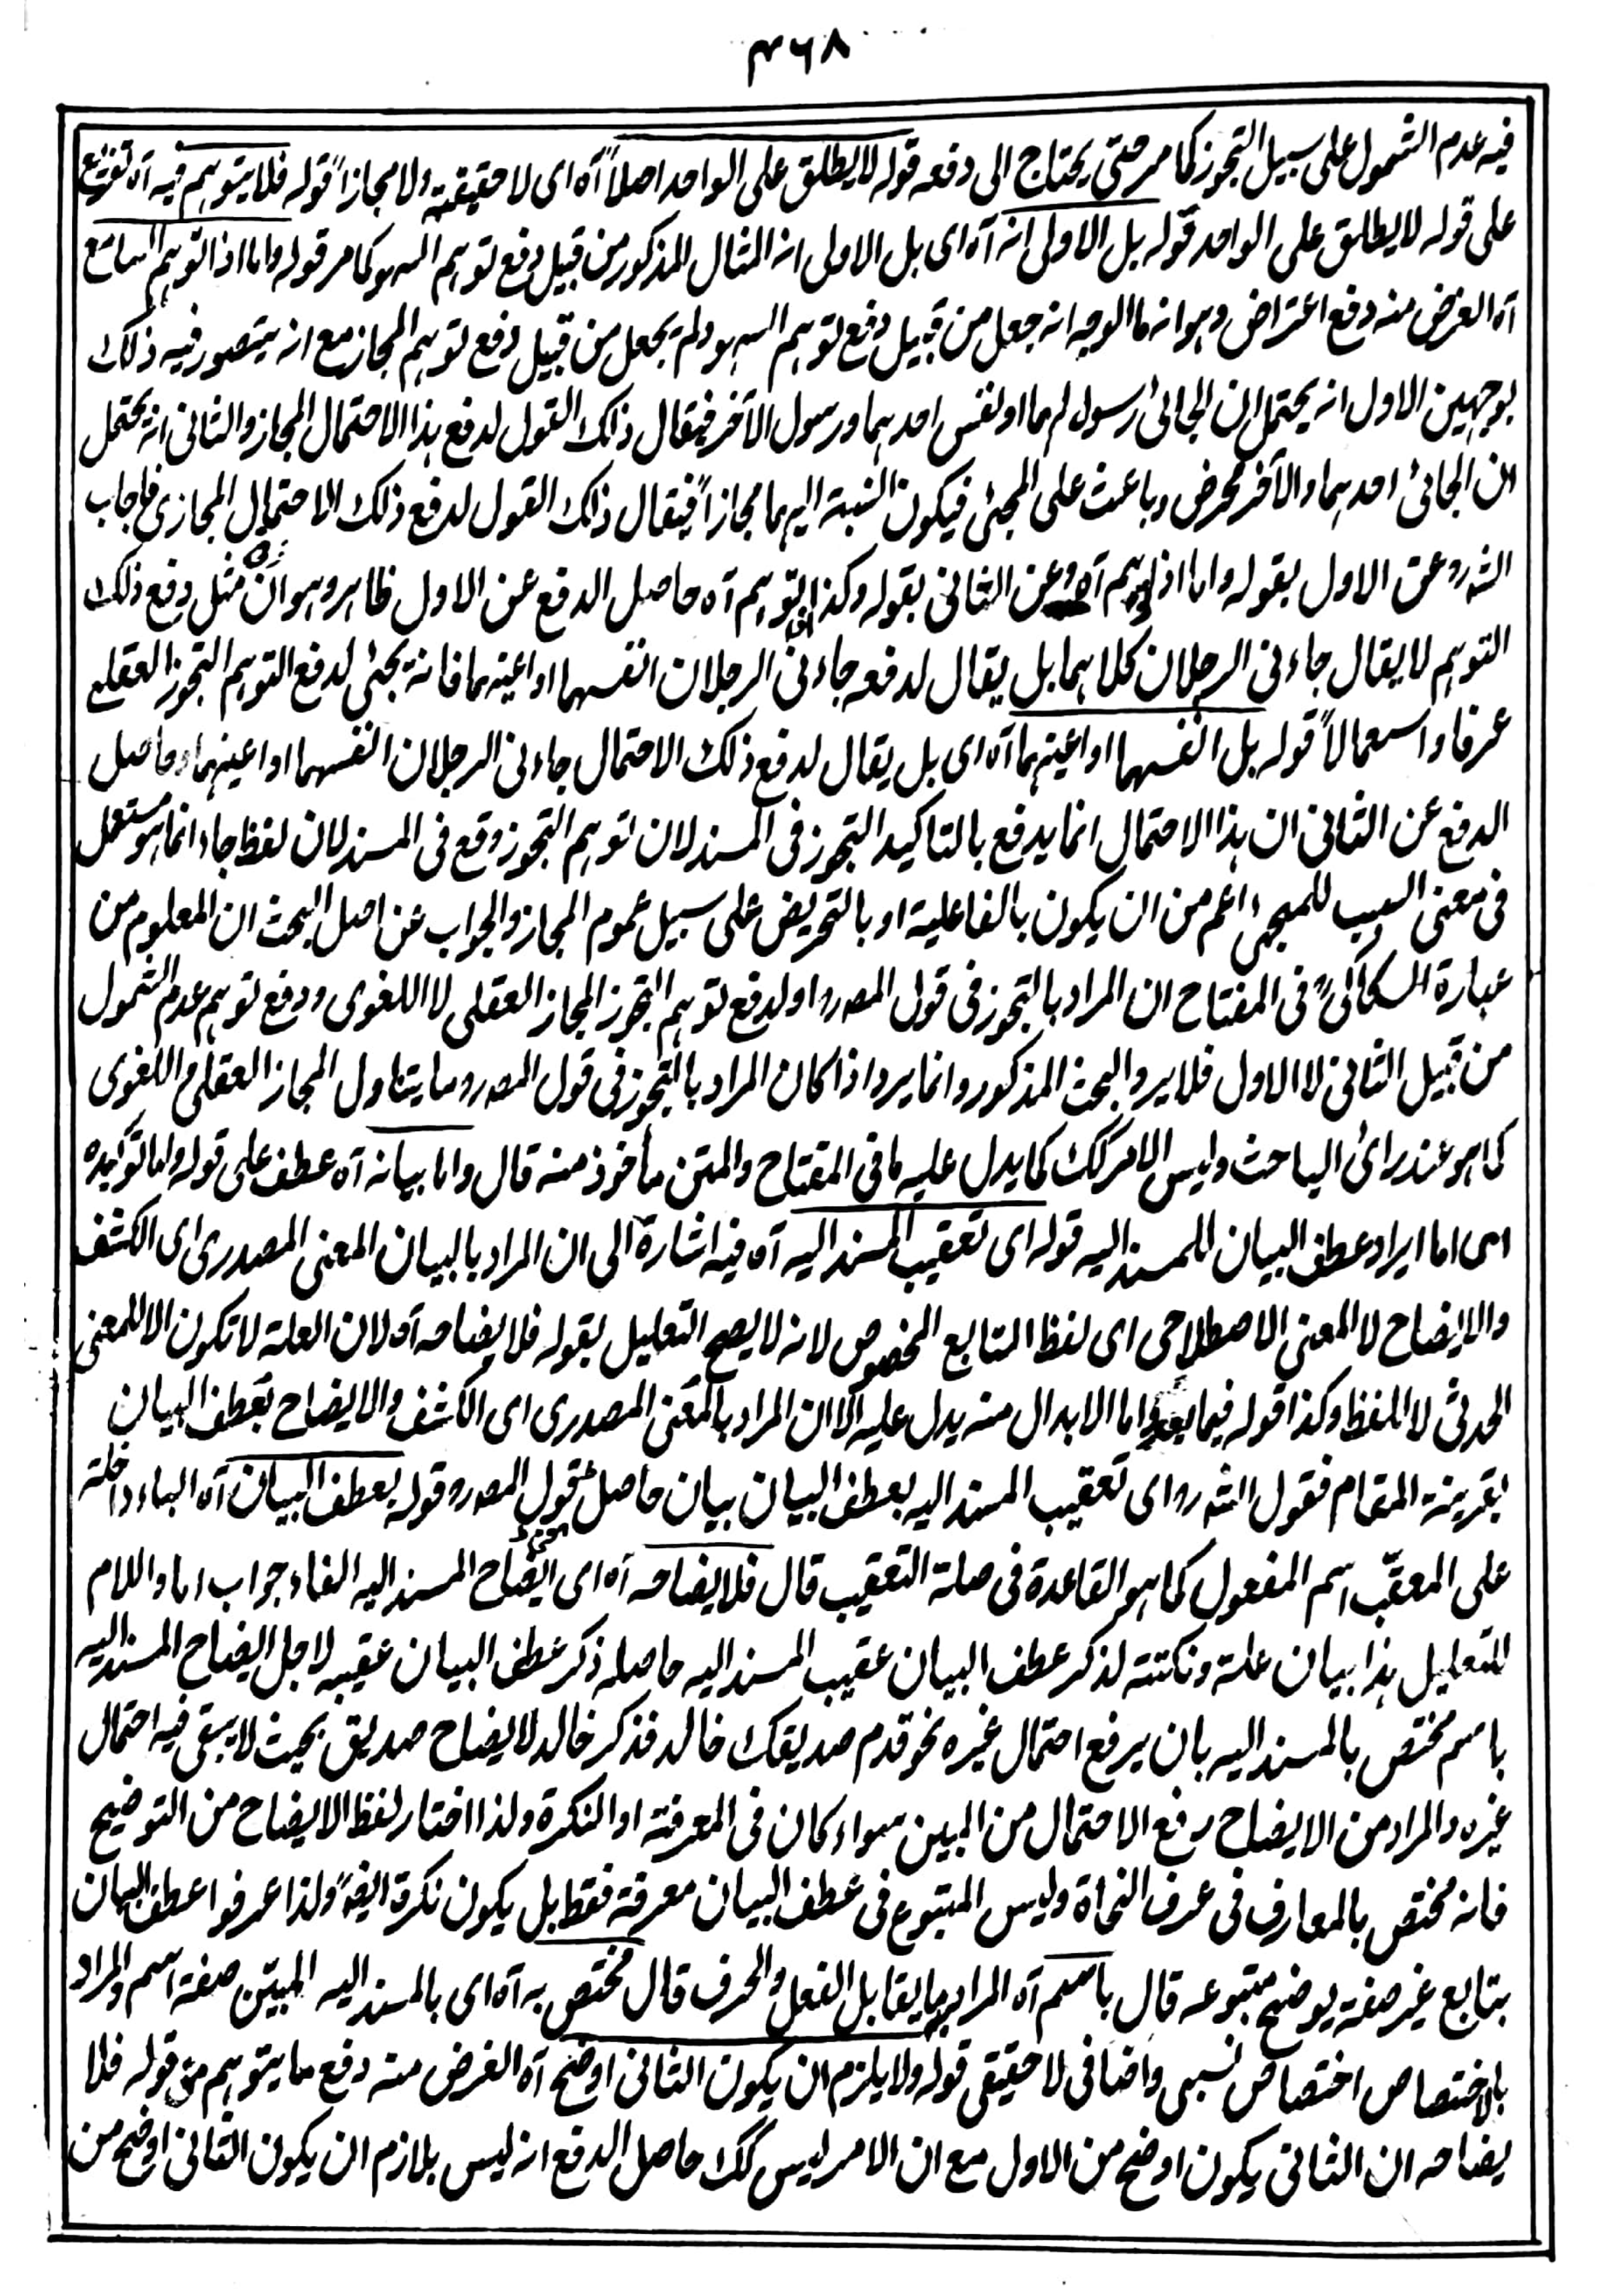 ۴۶۸
فیه عدم الشمول علی سبیل التجوز کما مر حتی یحتاج الی دفعه قوله لا یطلق علی الواحد اصلاً آه ای لا حقیقیة ولا مجازاً قوله فلا یتوهم فیه آه تفریع
علی قوله لا یطلق علی الواحد قوله بل الاولی انه آه ای بل الاولی ان المثال المذکور من قبیل دفع توهم السهو کما مر قوله واما اذا توهم السامع
آه الغرض منه دفع اعتراض وهو انه ما الوجه انه جعل من قبیل دفع توهم السهو ولم یجعل من قبیل دفع توهم المجاز مع انه یتصور فیه ذلک
بوجهین الاول انه یحتمل ان الجائی رسولهما او نفس احدهما ورسول الآخر فیقال ذلک القول لدفع هذا الاحتمال المجاز والثانی انه یحتمل
ان الجائی احدهما والآخر محرض وباعث علی المجئی فیکون النسبة الیهما مجازاً فیقال ذلک القول لدفع ذلک الاحتمال المجازی فاجاب
الشہ رہ عن الاول بقوله واما اذا توهم آه وعن الثانی بقوله وکذا توهم آه حاصل الدفع عن الاول ظاهر وهو ان مثل دفع ذلک
التوهم لا یقال جاءنی الرجلان کلاهما بل یقال لدفعه جاءنی الرجلان انفسهما او اعینهما فانه یجئی لدفع التوهم التجوز العقلی
عرفا واستعمالاً قوله بل انفسهما او اعینهما آه ای بل یقال لدفع ذلک الاحتمال جاءنی الرجلان انفسهما او اعینهما وحاصل
الدفع عن الثانی ان هذا الاحتمال انما یدفع بالتاکید التجوز فی المسند لان توهم التجوز وقع فی المسند لان لفظ جاء انما هو مستعمل
فی معنی السبب للمجئی اعم من ان یکون بالفاعلیة او بالتحریض علی سبیل عموم المجاز والجواب عن اصل البحث ان المعلوم من
عبارة السکاکیؒ فی المفتاح ان المراد بالتجوز فی قول المصہ رہ او لدفع توهم التجوز المجاز العقلی لا اللغوی ودفع توهم عدم الشمول
من قبیل الثانی لا الاول فلا یرد البحث المذکور وانما یرد اذا کان المراد بالتجوز فی قول المصہ رہ ما یتناول المجاز العقلی واللغوی
کما هو عند رای الباحث ولیس الامر کک کما یدل علیه ما فی المفتاح والمتن مأخوذ منه قال واما بیانه آه عطف علی قوله واما توکیده
ای اما ایراد عطف البیان للمسند الیه قوله ای تعقیب المسند الیه آه فیه اشارة الی ان المراد بالبیان المعنی المصدری ای الکشف
والایضاح لا المعنی الاصطلاحی ای لفظ التابع المخصوص لانه لا یصح التعلیل بقوله فلایضاحه آه لان العلة لا تکون الا للمعنی
الحدثی لا اللفظ وکذا قوله فیما بعد واما الابدال منه یدل علیه الا ان المراد بالمعنی المصدری ای الکشف والایضاح بعطف البیان
بقرینة المقام فقول الشہ رہ ای تعقیب المسند الیه بعطف البیان بیان حاصل لقول المصہ رہ وقوله بعطف البیان آه الباء داخلة
علی المعقَّب اسم المفعول کما هو القاعدة فی صلة التعقیب قال فلایضاحه آه ای ایضاح المسند الیه الفاء جواب اما واللام
للتعلیل هذا بیان علة ونکتة لذکر عطف البیان عقیب المسند الیه حاصله ذکر عطف البیان عقیبه لاجل ایضاح المسند الیه
باسم مختص بالمسند الیه بان یرفع احتمال غیره نحو قدم صدیقک خالد فذکر خالد لایضاح صدیق بحیث لا یبقی فیه احتمال
غیره والمراد من الایضاح رفع الاحتمال من المبین سواء کان فی المعرفة او النکرة ولذا اختار لفظ الایضاح من التوضیح
فانه مختص بالمعارف فی عرف النحاة ولیس المتبوع فی عطف البیان معرفة فقط بل یکون نکرة ایضاً ولذا عرفوا عطف البیان
بتابع غیر صفة یوضح متبوعه قال باسم آه المراد به ما یقابل الفعل والحرف قال مختص به آه ای بالمسند الیه المبیّن صفة اسم والمراد
بالاختصاص اختصاص نسبی واضافی لا حقیقی قوله ولا یلزم ان یکون الثانی اوضح آه الغرض منه دفع ما یتوهم من قوله فلا
یضاحه ان الثانی یکون اوضح من الاول مع ان الامر لیس کک حاصل الدفع انه لیس بلازم ان یکون الثانی اوضح من